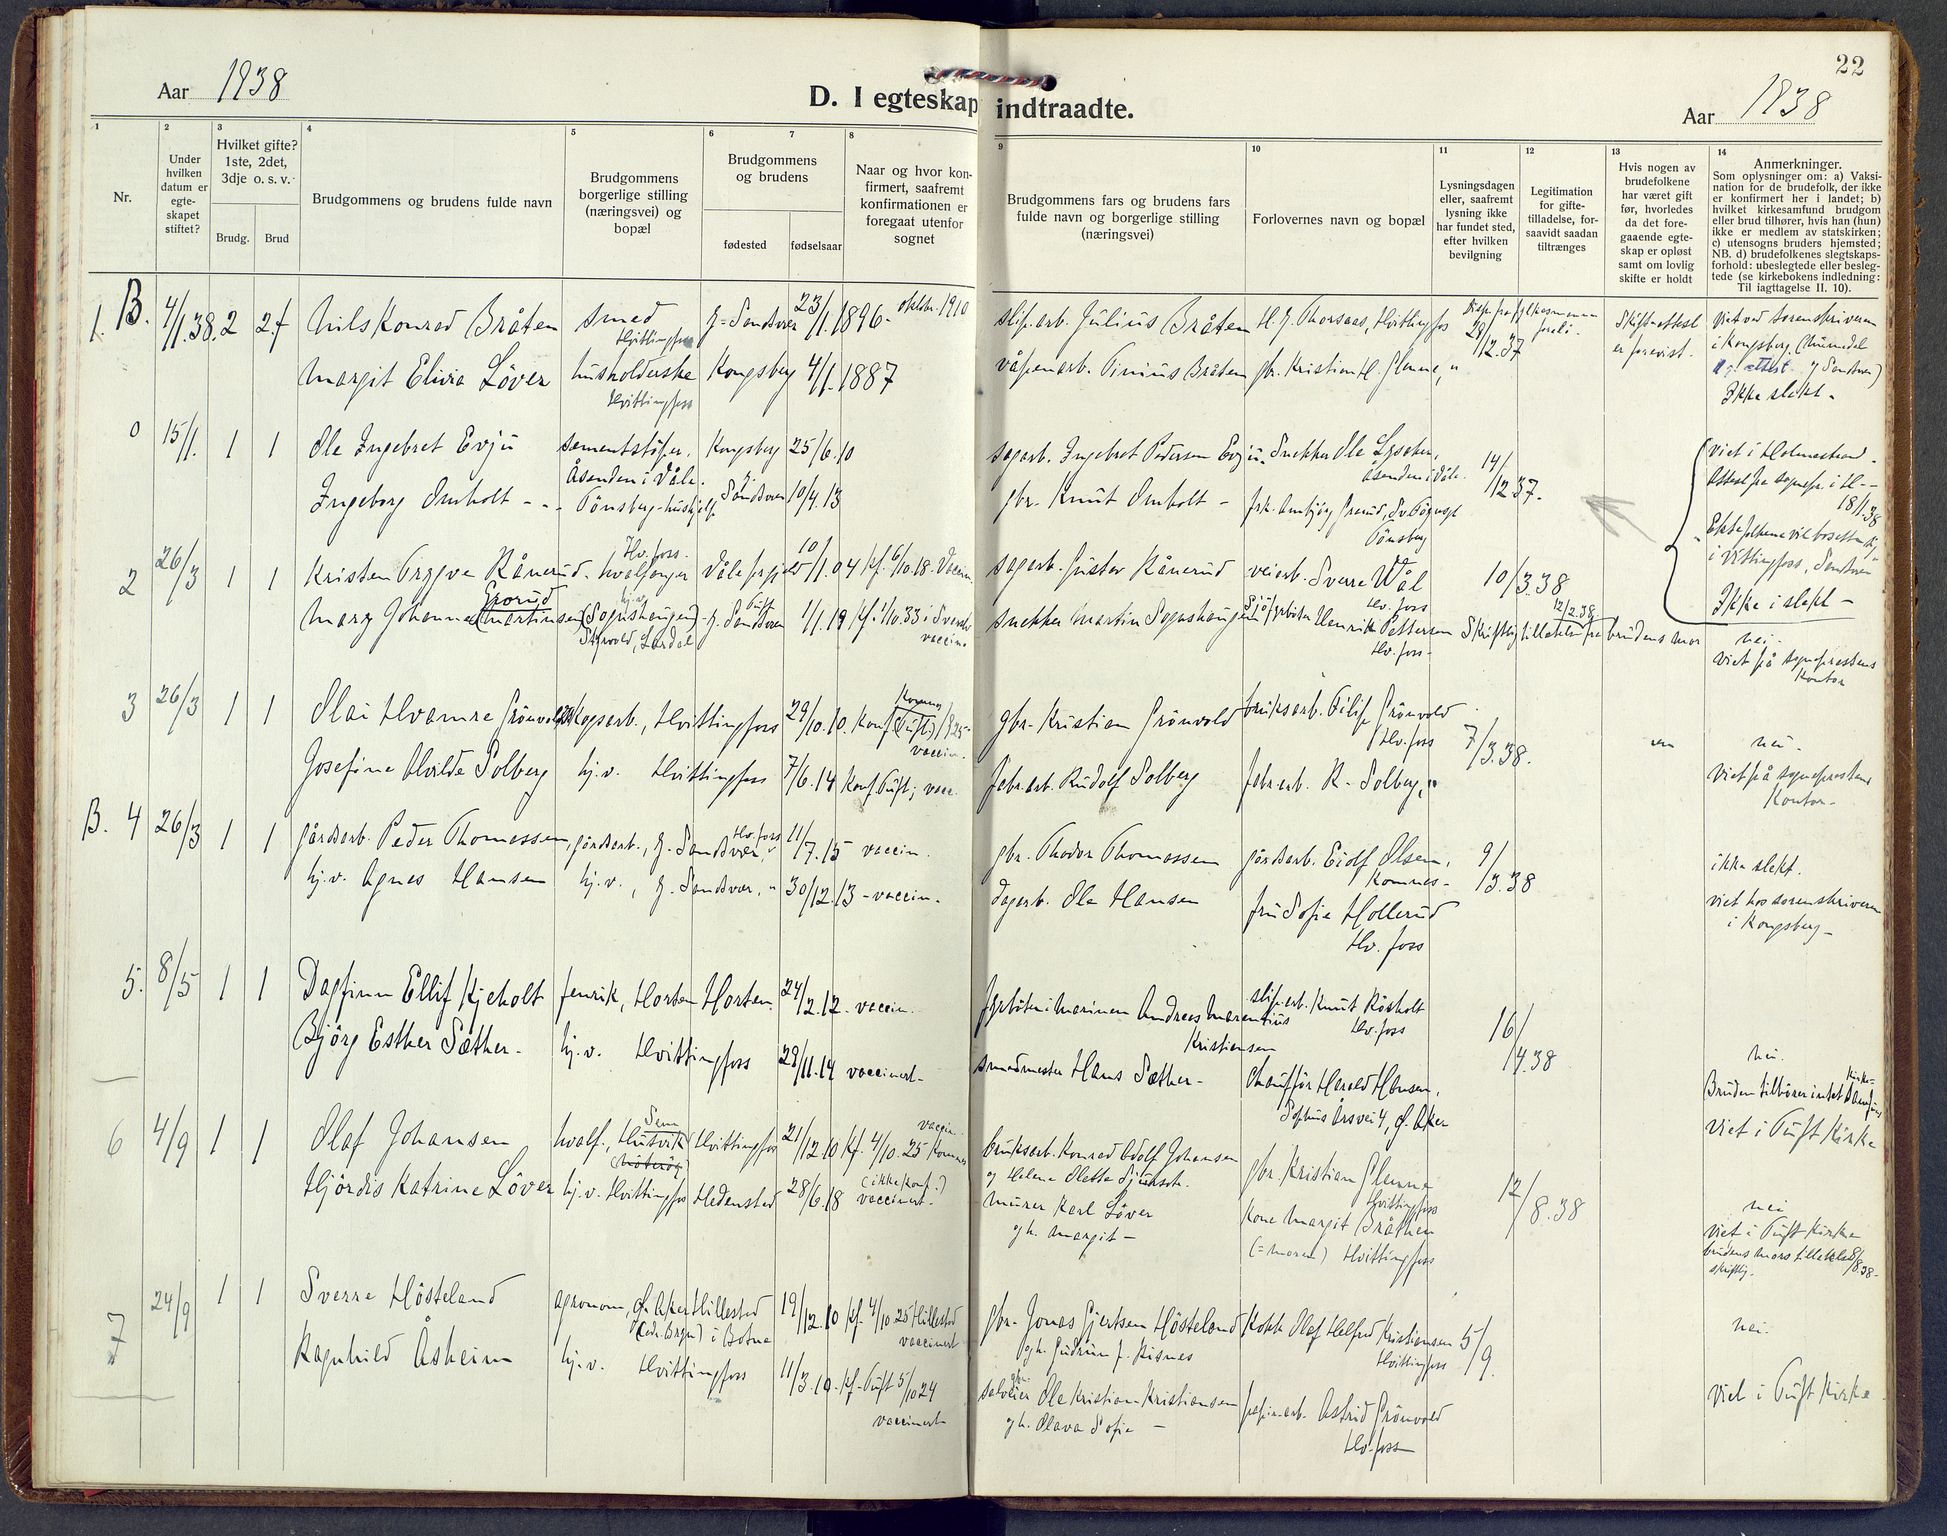 Aar 1938
D. I egteskap indtraadte.
Aar 1938
22
1
2
3
4
5
6
7
8
9
10
11
12
13
14
Nr.
Under hvilken datum er egte-skapet stiftet?
Hvilket gifte? 1ste, 2det, 3dje o. s. v.
Brudg.
Brud
Brudgommens og brudens fulde navn
Brudgommens borgerlige stilling (næringsvei) og bopæl
Brudgommens og brudens
fødested
fødselsaar
Naar og hvor kon-firmert, saafremt konfirmationen er foregaat utenfor sognet
Brudgommens fars og brudens fars fulde navn og borgerlige stilling (næringsvei)
Forlovernes navn og bopæl
Lysningsdagen eller, saafremt lysning ikke har fundet sted, efter hvilken bevilgning
Legitimation for gifte-tilladelse, for-saavidt saadan tiltrænges
Hvis nogen av brudefolkene har været gift før, hvorledes da det fore-gaaende egte-skap er opløst samt om lovlig skifte er holdt
Anmerkninger.
Som oplysninger om: a) Vaksi-nation for de brudefolk, der ikke er konfirmert her i landet; b) hvilket kirkesamfund brudgom eller brud tilhører, hvis han (hun) ikke er medlem av statskirken; c) utensogns bruders hjemsted; NB. d) brudefolkenes slegtskaps-forhold: ubeslegtede eller besleg-tede (se kirkebokens indledning: Til iagttagelse II. 10).
1. B. 4/1.38. 2 2. Nils Konrad Bråten smed Hvittingfoss Y. Sandsvær 23/1.1896 oktbr. 1910 slip.arb. Julius Bråten H. G. Thorsaas, Hvittingfoss 28/12.37 Skifteattest er forevist.
viet ved sorenskriveren i Kongsberg. (Numedal og Sandsvær)
Margit Elivia Löver husholderske Hvittingfoss Kongsberg 4/1.1887 våpenarb. Tinius Bråten gbr. Kristian H. Glenne, "
Ikke slekt -
0 15/1. 1 1 Ole Ingebret Evju sementstöper. Åsenden i Våle. Kongsberg 25/6.10 sagarb. Ingebret Pedersen Evju. Snekker Ole Åsenden i Våle. 14/12.37.
viet i Holmestrand -
Attest fra sognepr. i H - - 18/1.38
Ingeborg Omholt - - - Tönsberg - hushjelp Sandsvær 10/4.13 gbr. Knut Omholt - Tönsberg
Ektefolkene vil bosette sig i Vittingfoss, Sandsvær
Ikke i slekt -
2 26/3 1 1 Kristen Trygve Rånerud Hv. foss. hvalfanger Våle 10/1.04 Kf. 6/10.18. Vaccin. sagarb. Gustav Rånerud veiarb. Sverre Wål Hv. foss 10/3.38
Mary Johanne (Martinsen) (Sogushaugen) hj.v. Y. Sandsvær 1/1.19 Kf. 1/10.33 i vaccin. snekker Martin Henrik Pettersen Hv. foss - Skriftlig tillatelse fra brudens mor 12/2.38.
nei.
viet på sogneprestens kontor
3 26/3 1 1 Olai Hvamre Grönvold skogsarb., Hvittingfoss 29/10.10. Konf. Komnes vaccin. gbr. Kristian Grönvold bruksarb. Filip Grönvold Hv. foss 7/3.38.
nei -
Josefine Alvilde Solberg hj.v. Hvittingfoss 7/6.14 Konf. Tuft; vacc. fabr.arb. Rudolf Solberg fabr.arb. R. Solberg, "
viet på sogneprestens kontor -
B. 4 26/3 1 1 gårdsarb. Peder Thomassen, gårdsarb., Y. Sandsvær, Hv. foss 11/7.15 vaccin. gbr. Thodor Thomassen gårdsarb. Eiolf Olsen, Komnes - 9/3.38
ikke slekt.
hj.v. Agnes Hansen hj.v., Y. Sandsvær, " 30/12.13 - vaccin. dagarb. Ole Hansen fru Sofie Hollerud Hv. foss
viet hos sorenskriveren i Kongsberg -
5. 8/5 1 1 Dagfinn Ellif Kjeholt fenrik, Horten Horten. 24/2.12. vaccin. fyrböter i Marinen Andreas Marentius Kristiansen slip.arb. Knut Rösholt Hv. foss 16/4.38
Björg Esther Sæther - hj.v. Hvittingfoss 28/11.14 vaccinert - smedmester Hans Sæther - chauffør Harald Hansen, Sofhus Årsvei 4, Ø. Aker
nei.
Bruden tilhörer intet kirkesamfund
viet i Tuft Kirke
6 4/9 1 1 Olaf Johansen hvalf., Sem Hvittingfoss 21/12.10 Kf. 4/10.25 Komnes vaccin. bruksarb. Konrad Adolf Johansen og Helene Mette gbr. Kristian Glenne Hvittingfoss 12/8.38
nei
Hjördis Katrine Löver hj.v. Hvittingfoss Hedensted 28/6.18 (ikke konf.) vaccinert. murer Karl Löver og h. Margit - Kone Margit Bråthen (= moren) Hvittingfoss
viet i Tuft Kirke
brudens mors tillatelse 8/8.38 - skriftlig.
7 24/9 1 1 Sverre Hösteland agronom, Ø. Aker Hillestad i Botne 19/12.10 Kf. 4/10 25 Hillestad vaccinert gbr. Jonas Gjertsen Hösteland og h. Gudrun f. Risnes Kokk Olaf Helfred Kristiansen Hvittingfoss 5/9.
nei.
Ragnhild Åsheim hj.v. Hvittingfoss 11/3.10 - Kf. Tuft 5/10 24 vaccinert Ole Kristian Kristiansen og h. Olava Sofie - papirarb. Astrid Grönvold Hv. foss
viet i Tuft Kirke